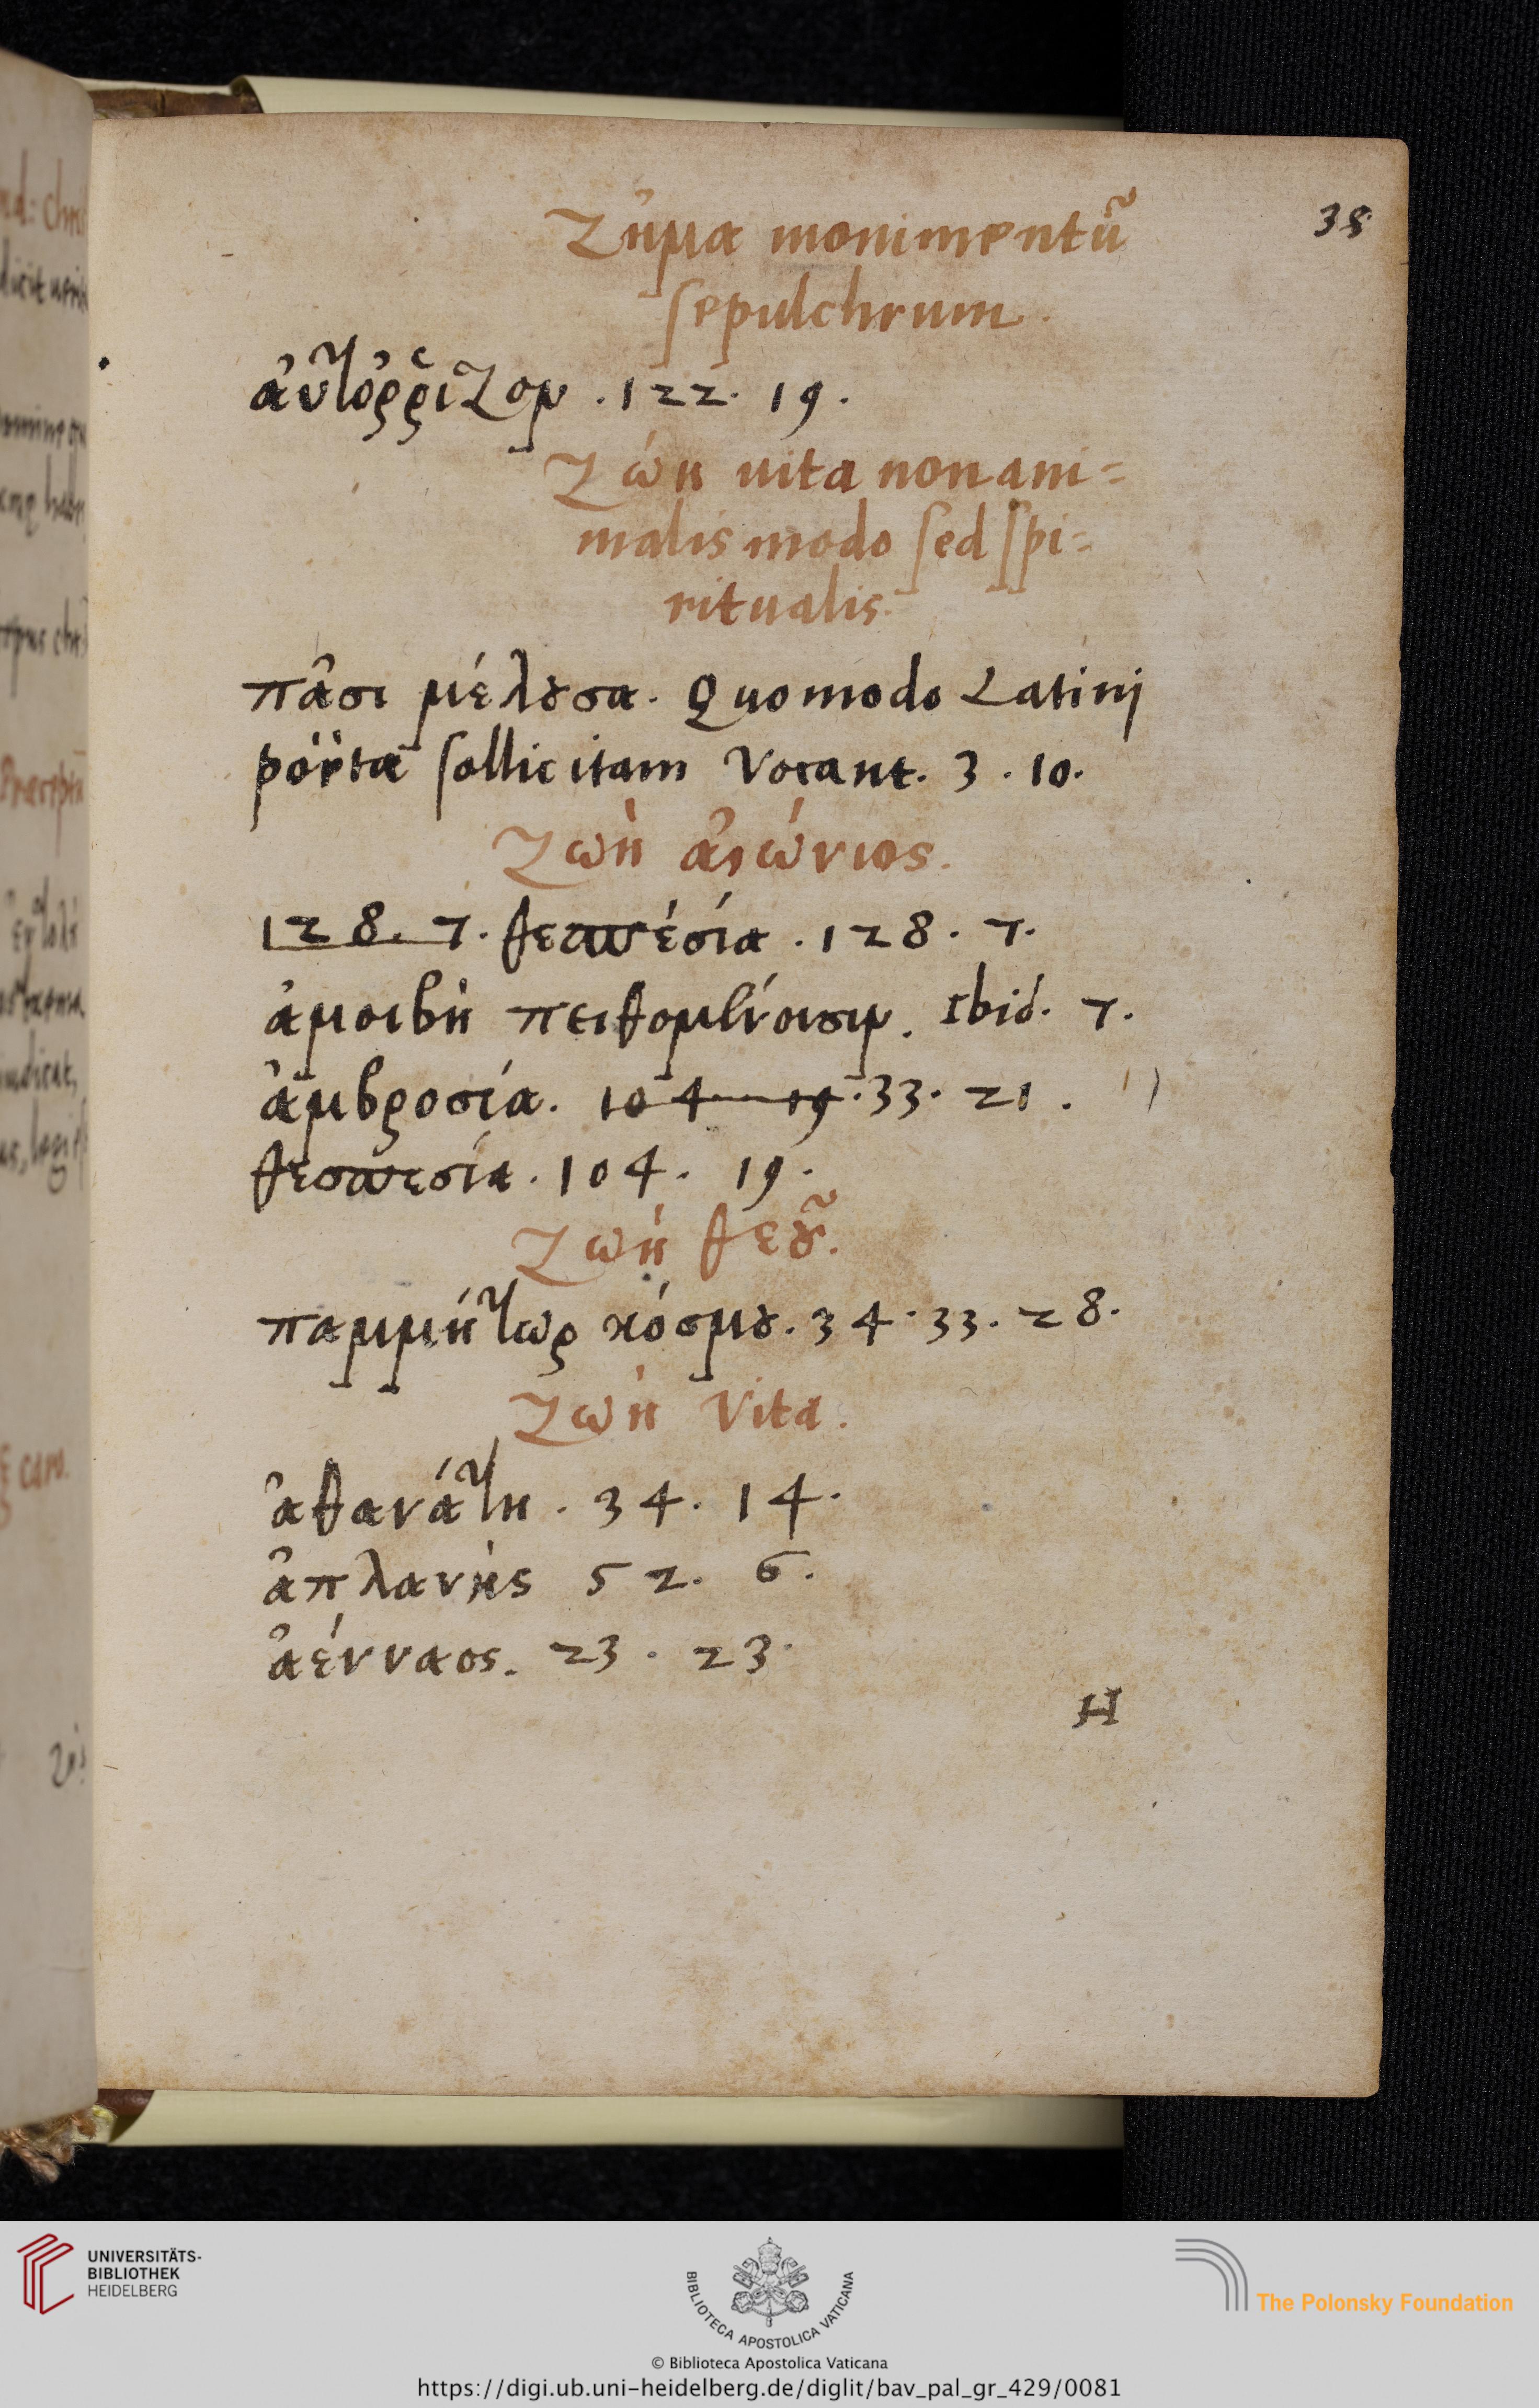 38
Ζῆμα monimentũ
sepulchrum.
ἀυτόῤῥιζον. 122. 19.
Ζώη uita non ani=
malis modo sed spi=
ritualis.
πᾶσι μέλουσα. Quomodo Latinj
sollicitam vocant. 3. 10.
Ζωὴ ἀιώνιος.
128. 7. θεσπέσία. 128. 7.
ἀμοιβὴ πειθομένοισιν. Ibid. 7.
ἀμβροσία. 104. 19. 33. 21.
θεσπεσία. 104. 19.
Ζωὴ θεοῦ.
παμμήτωρ κόσμου. 34. 33. 28.
Ζωὴ Vita.
ἀθανάτη. 34. 14.
ἀπλανὴς 52. 6.
ἀένναος. 23. 23.
H
UNIVERSITÄTS-
BIBLIOTHEK
HEIDELBERG
BIBLIOTECA APOSTOLICA VATICANA
The Polonsky Foundation
© Biblioteca Apostolica Vaticana
https://digi.ub.uni-heidelberg.de/diglit/bav_pal_gr_429/0081